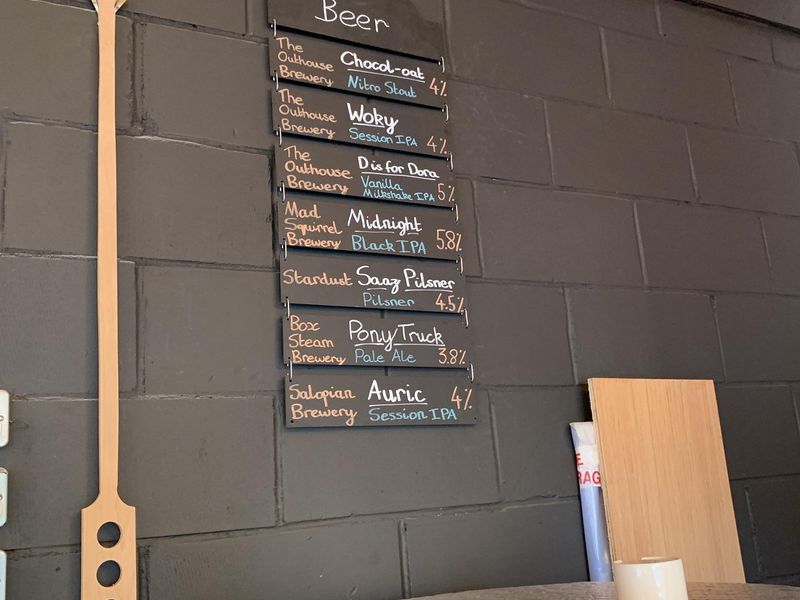 Beer
The Outhouse Brewery
Chocol-oat
Nitro Stout 4%
The Outhouse Brewery
Woky
Session IPA 4%
The Outhouse Brewery
D is for Dora
Vanilla Milkshake IPA 5%
Mad Squirrel Brewery
Midnight
Black IPA 5.8%
Stardust
Saaz Pilsner
Pilsner 4.5%
Box Steam Brewery
Pony Truck
Pale Ale 3.8%
Salopian Brewery
Auric 4%
Session IPA
E
RAG